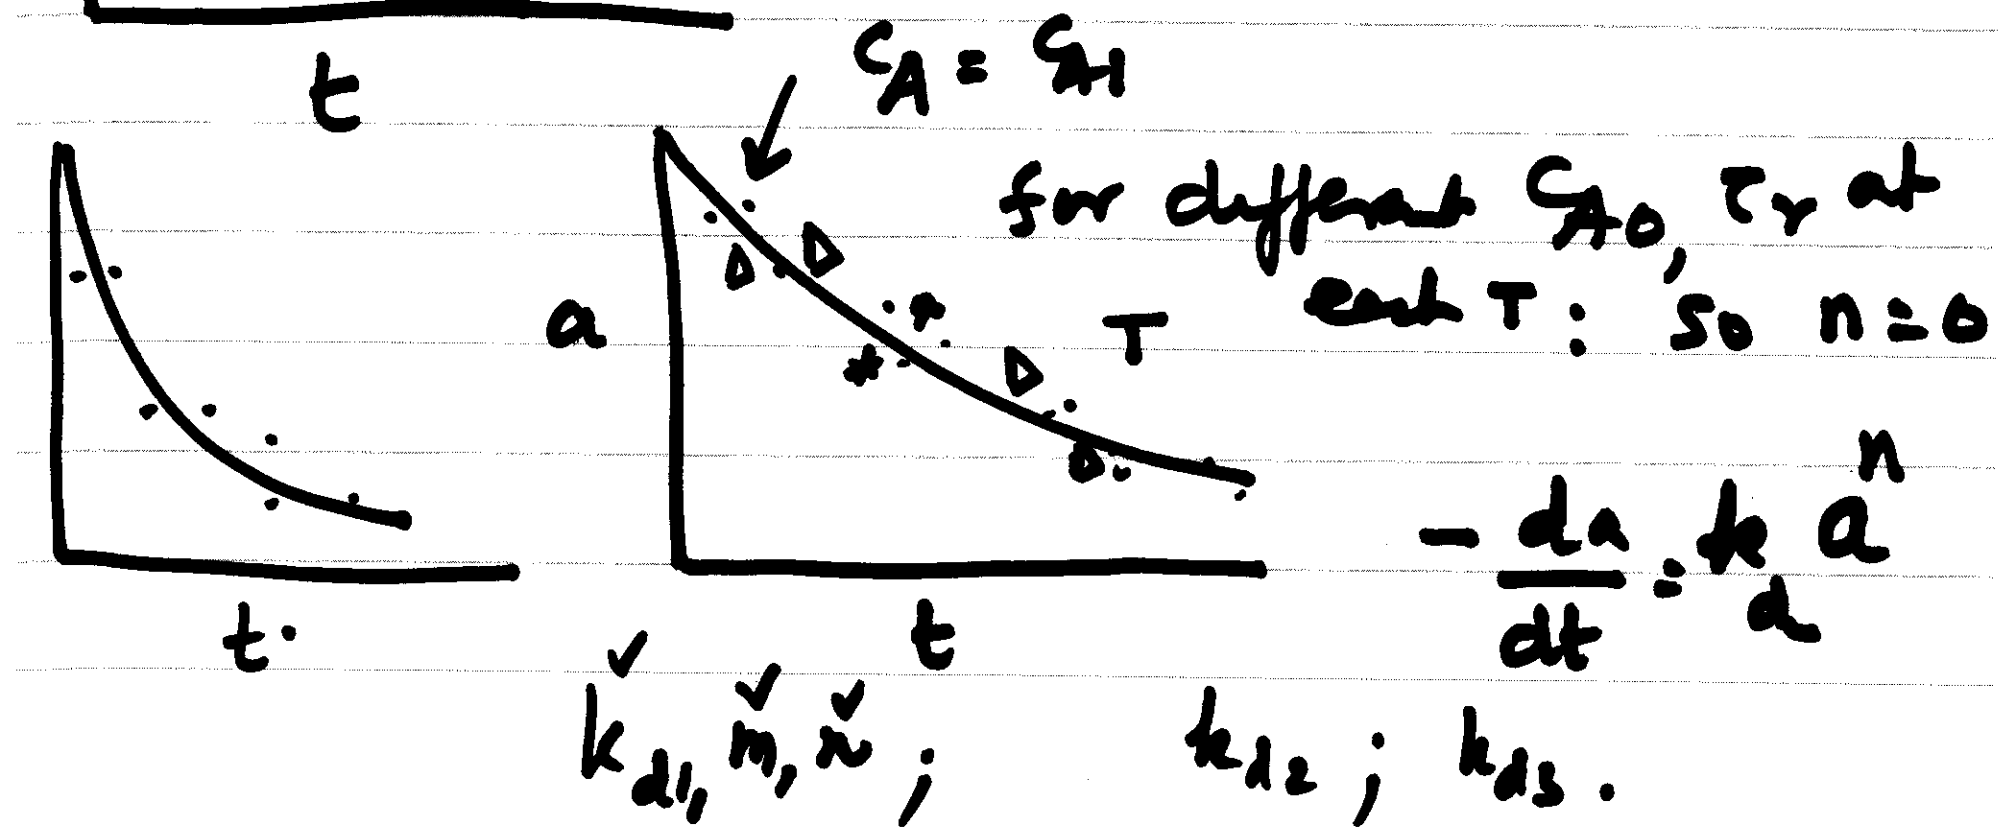 t
C_A = C_A1
for different C_A0, τ_r at
each T : so n = 0
a
T
- da/dt = k_d a^n
t.
t
k_d1, m, n ; k_d2 ; k_d3 .